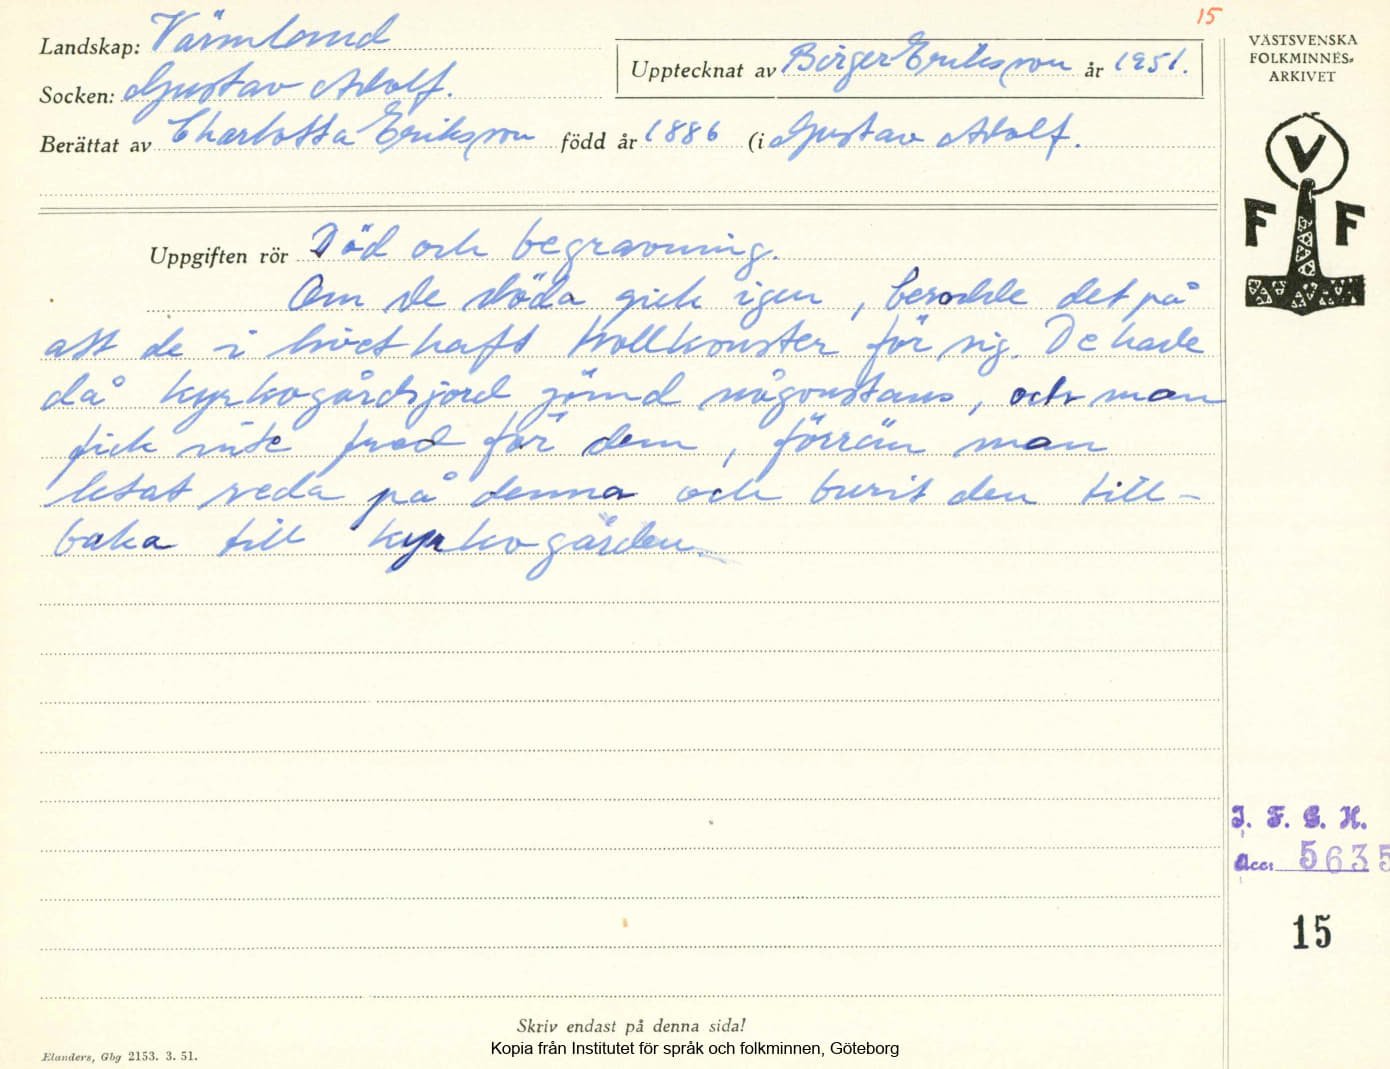 15
Landskap: Värmland
Socken: Gustav Adolf.
Upptecknat av Börger Eriksson år 1951.
Berättat av Charlotta Eriksson född år 1886 (i Gustav Adolf.
VÄSTSVENSKA
FOLKMINNES-
ARKIVET
V
F F
Uppgiften rör Död och begravning.
Om de döda gick igen, berodde det på
att de i livet haft trollkonster för sig. De hade
då kyrkogårdsjord gömd någonstans, och man
fick inte fred för dem, förrän man
letat reda på denna och burit den till-
baka till kyrkogården.
I. F. G. H.
Acc: 5635
15
Skriv endast på denna sida!
Elanders, Gbg 2153. 3. 51.
Kopia från Institutet för språk och folkminnen, Göteborg